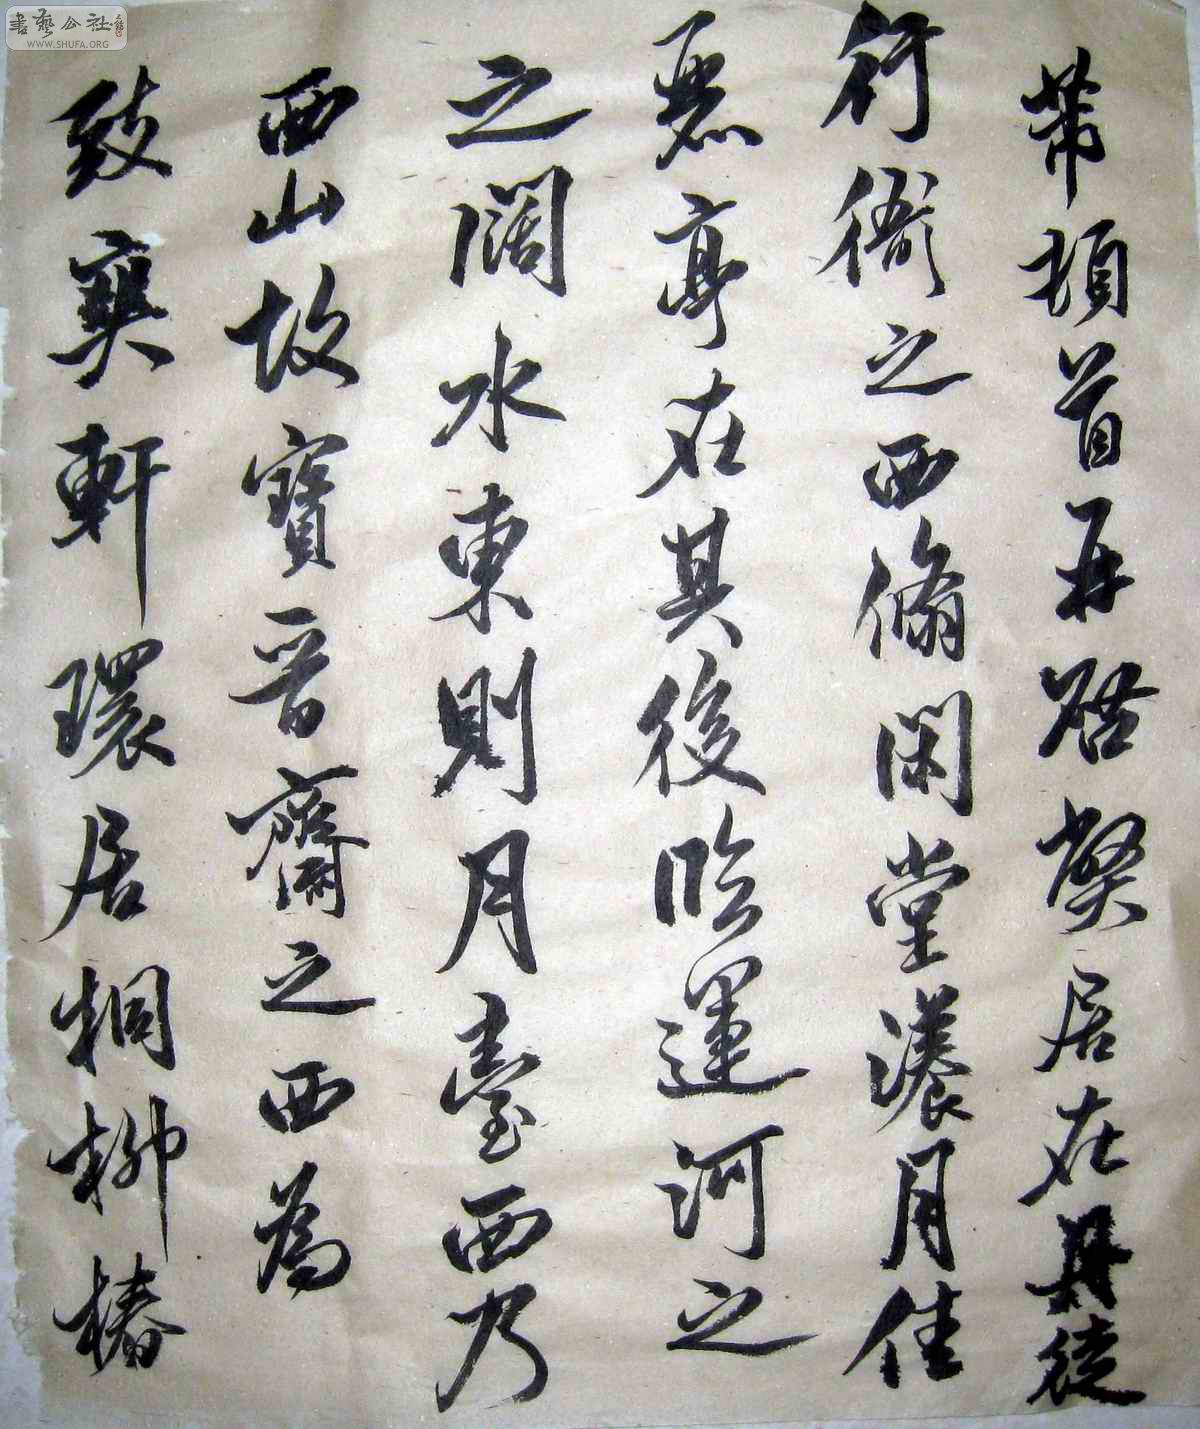 芾頓首再啓弊居在丹徒
行衙之西翛閑堂漾月佳
麗亭在其後臨運河之
之闊水東則月臺西乃
西山故寶晉齋之西為
致爽軒環居桐柳椿
書藝公社
WWW.SHUFA.ORG